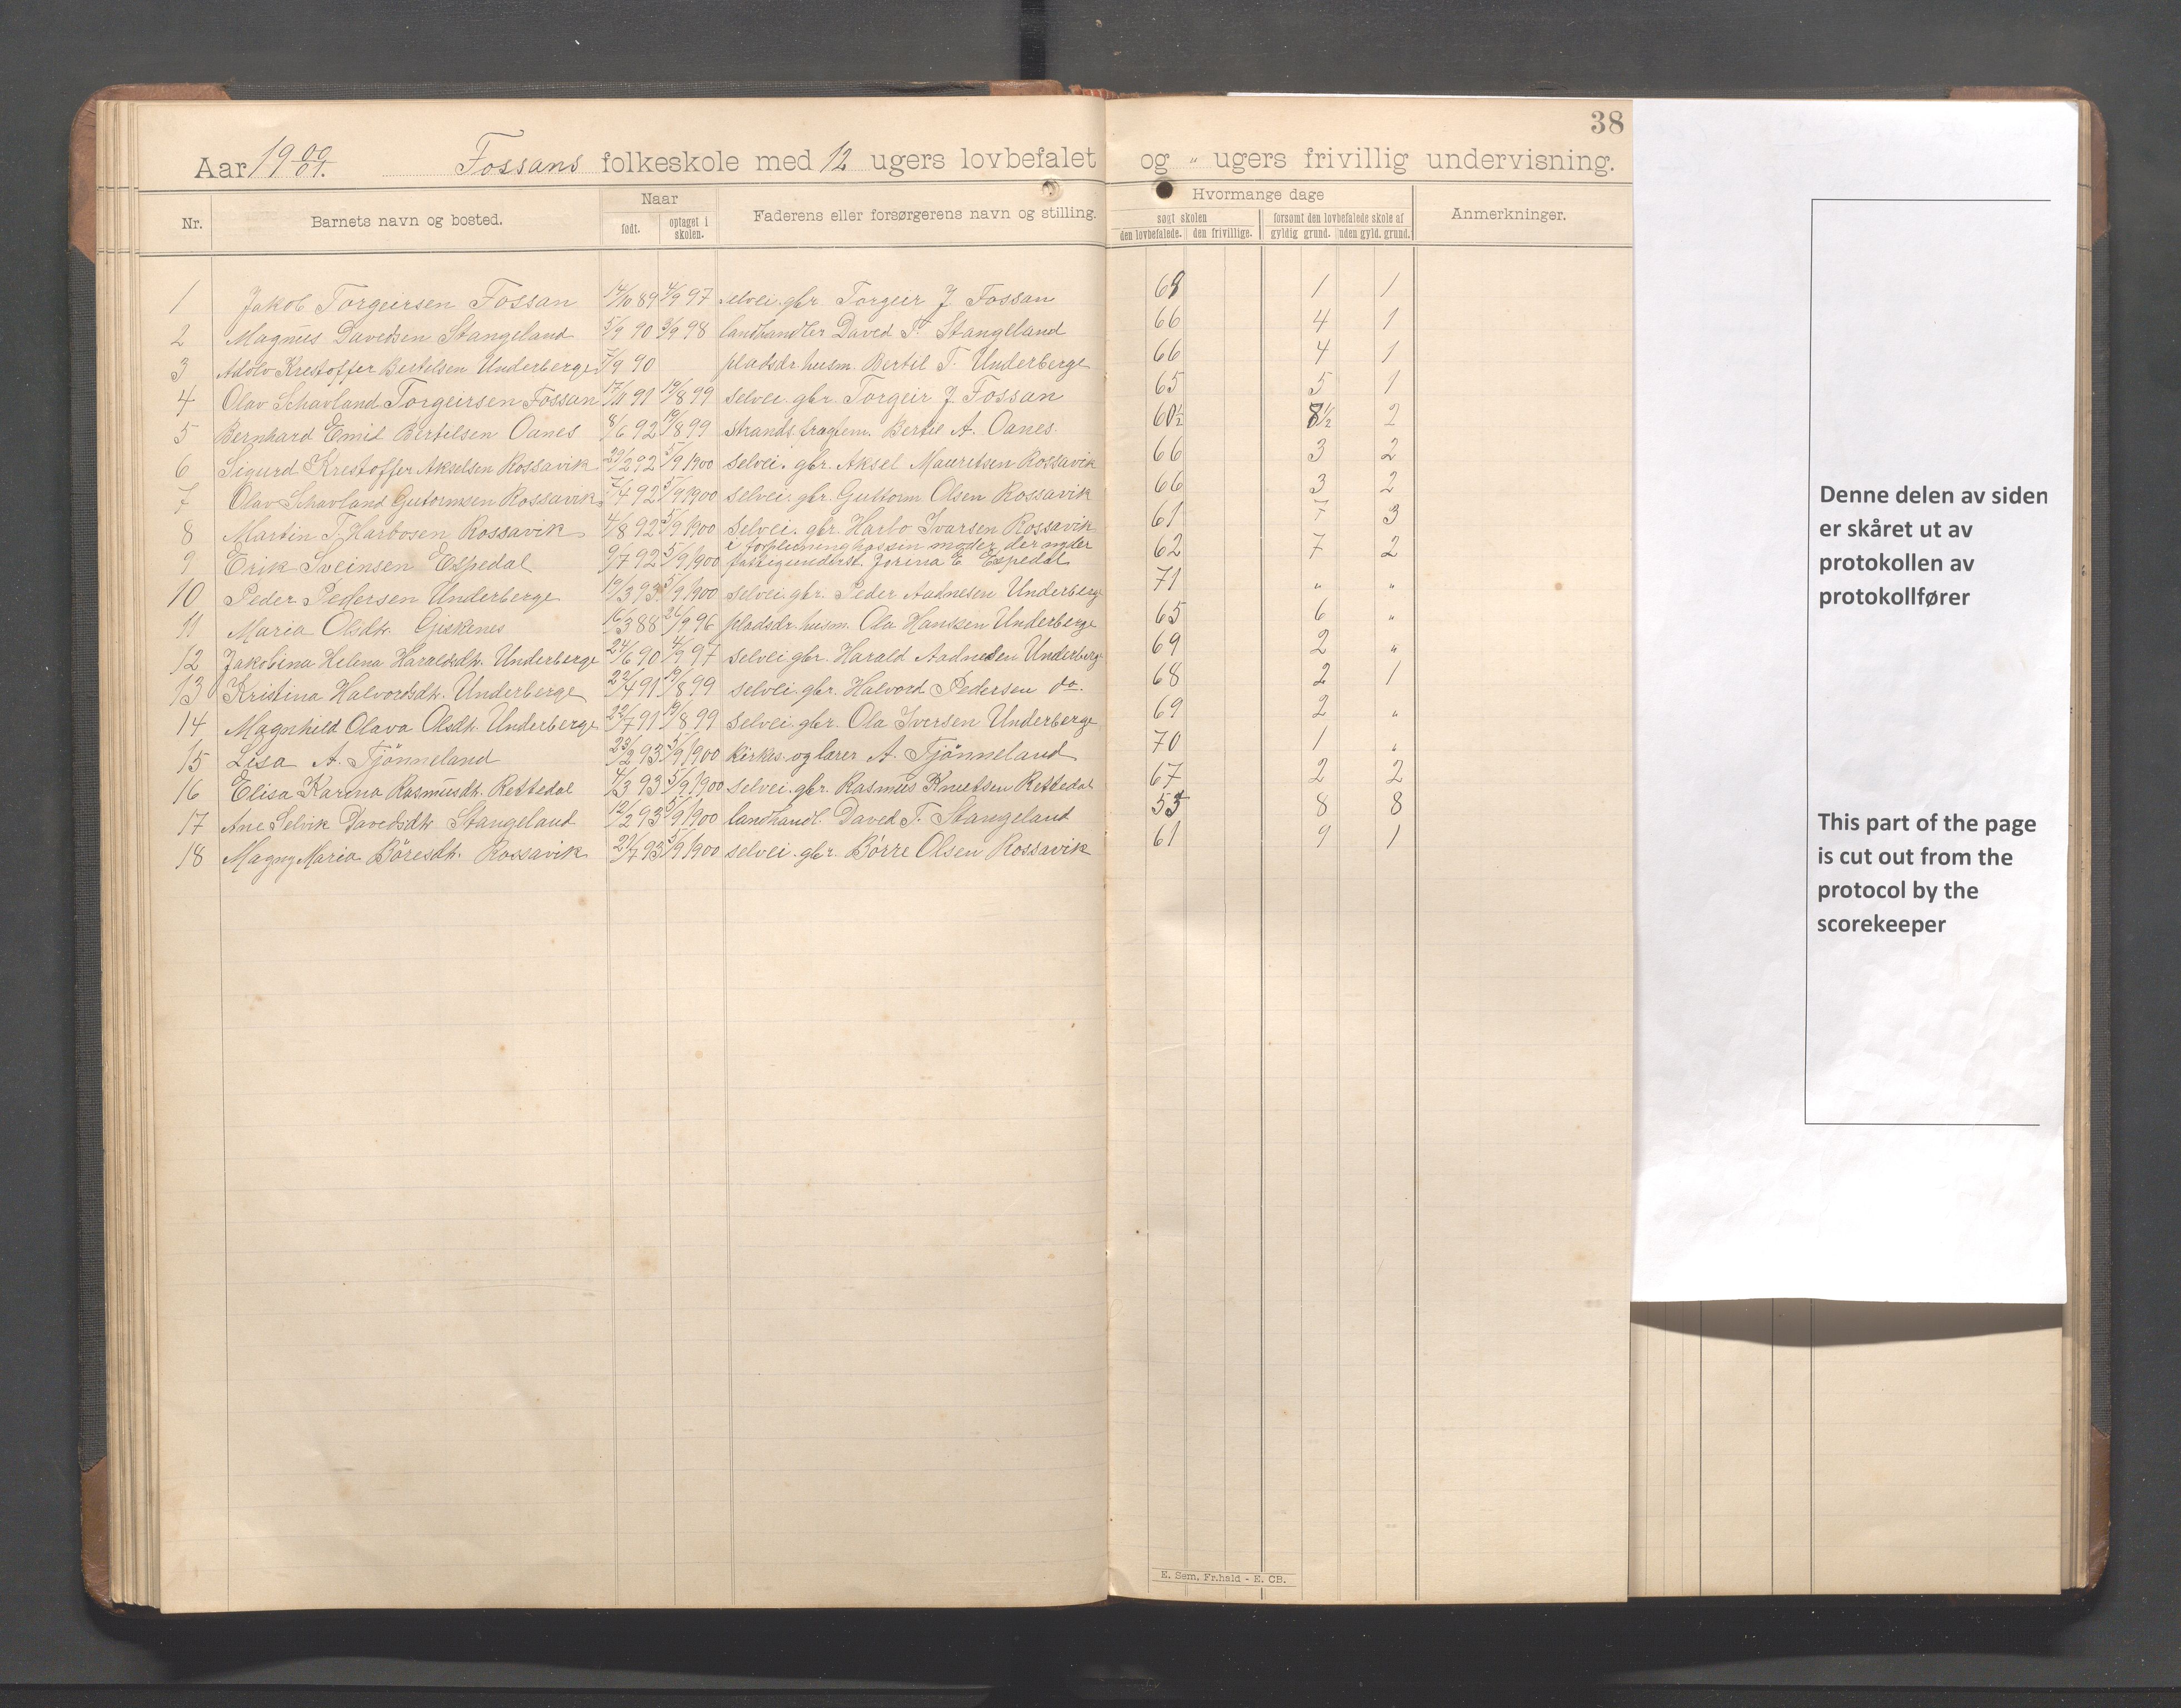 38
Aar 19 00/01. Fossans folkeskole med 12 ugers lovbefalet og „ ugers frivillig undervisning.
Nr. Barnets navn og bosted. Naar født. optaget i skolen. Faderens eller forsørgerens navn og stilling. Hvormange dage søgt skolen den lovbefalede. den frivillige. forsømt den lovbefalede skole af gyldig grund. uden gyld. grund. Anmerkninger.
1 Jakob Torgeirsen Fossan 14/10 89 4/9 97 selvei. gbr. Torgeir J. Fossan 68 1 1
2 Magnus Davedsen Stangeland 5/9 90 3/9 98 landhandler Daved T. Stangeland 66 4 1
3 Adolv Krestoffer Bertelsen Underberge 7/9 90 pladsdr. husm. Bertil T. Underberge 66 4 1
4 Olav Schavland Torgeirsen Fossan 17/11 91 19/8 99 selvei. gbr. Torgeir J. Fossan 65 5 1
5 Bernhard Emil Bertelsen Oanes 8/6 92 19/8 99 Bertil A. Oanes. 60½ 8½ 2
6 Sigurd Krestoffer Akselsen Rossavik 29/2 92 5/9 1900 selvei. gbr. Aksel Mauritsen Rossavik 66 3 2
7 Olav Schavland Gutormsen Rossavik 7/4 92 5/9 1900 selvei. gbr. Guttorm Olsen Rossavik 66 3 2
8 Martin T. Harbosen Rossavik 4/8 92 5/9 1900 selvei. gbr. Harbo Ivarsen Rossavik 61 7 3
9 Erik Sveinsen Espedal 9/7 92 5/9 1900 i forpleining hos sin moder, der nyder
fattigunderst. Jorina E. Espedal 62 7 2
10 Peder Pedersen Underberge 19/3 93 5/9 1900 selvei. gbr. Peder Aadnesen Underberge 71 „ „
11 Maria Olsdtr. 16/3 88 26/9 96 pladsdr. husm. Ola Hanssen Underberge 65 6 „
12 Jakobina Helena Haraldsdtr. Underberge 24/6 90 4/9 97 selvei. gbr. Harald Aadnesen Underberge 69 2 „
13 Kristina Halvordsdtr. Underberge 22/4 91 19/8 99 selvei. gbr. Halvord Pedersen do. 68 2 1
14 Magnhild Olava Olsdtr. Underberge 22/7 91 19/8 99 selvei. gbr. Ola Iversen Underberge 69 2 „
15 Lisa A. Tjönneland 23/2 93 5/9 1900 kirkes. og lærer A. Tjönneland 70 1 „
16 Elisa Karina Rasmusdtr. Rettedal 4/3 93 5/9 1900 selvei. gbr. Rasmus Knutsen Rettedal 67 2 2
17 Ane Selvik Davedsdtr. Stangeland 12/2 93 5/9 1900 landhandl. Daved T. Stangeland 55 8 8
18 Magny Maria Böresdtr. Rossavik 29/7 93 5/9 1900 selvei. gbr. Börre Olsen Rossavik 61 9 1
E. Sem, Fr.hald - E. CB.
Denne delen av siden
er skåret ut av
protokollen av
protokollfører
This part of the page
is cut out from the
protocol by the
scorekeeper